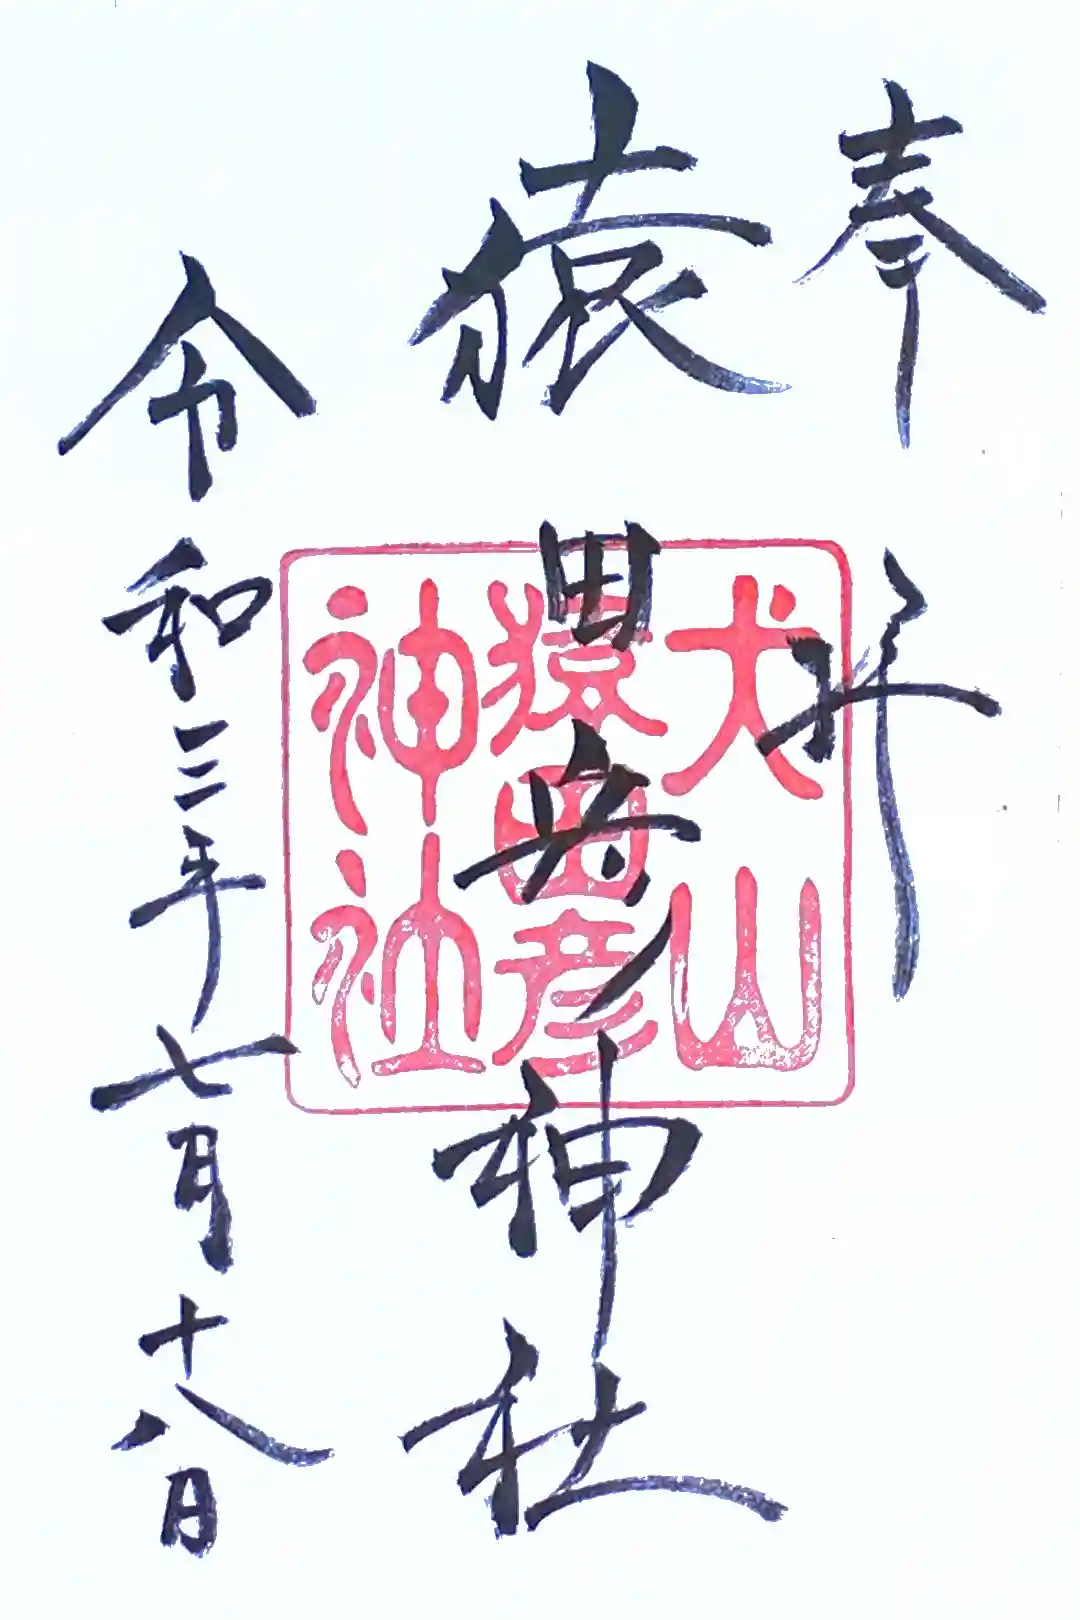 奉拝
猿田彦神社
令和三年七月十八日
犬山
猿田彦
神社